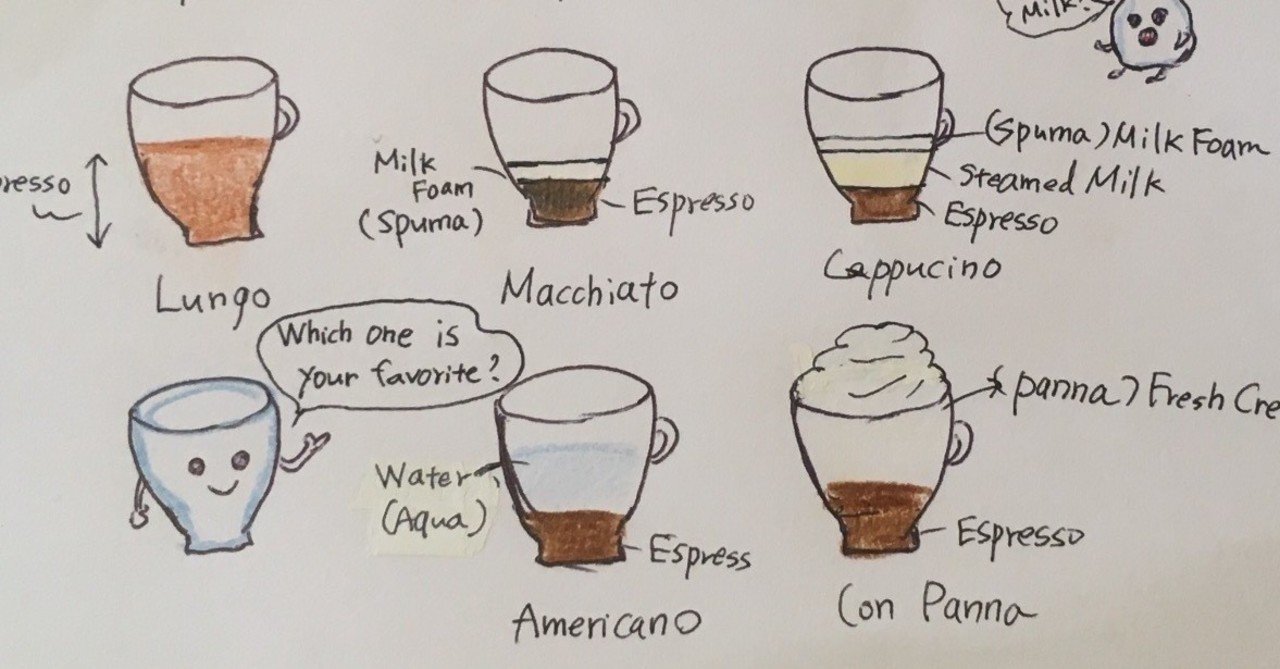 Milk?
resso
Lungo
Milk
Foam
(Spuma)
Espresso
Macchiato
(Spuma) Milk Foam
Steamed Milk
Espresso
Cappucino
Which one is
your favorite?
Water
(Aqua)
Espress
Americano
(panna) Fresh Cre
Espresso
Con Panna